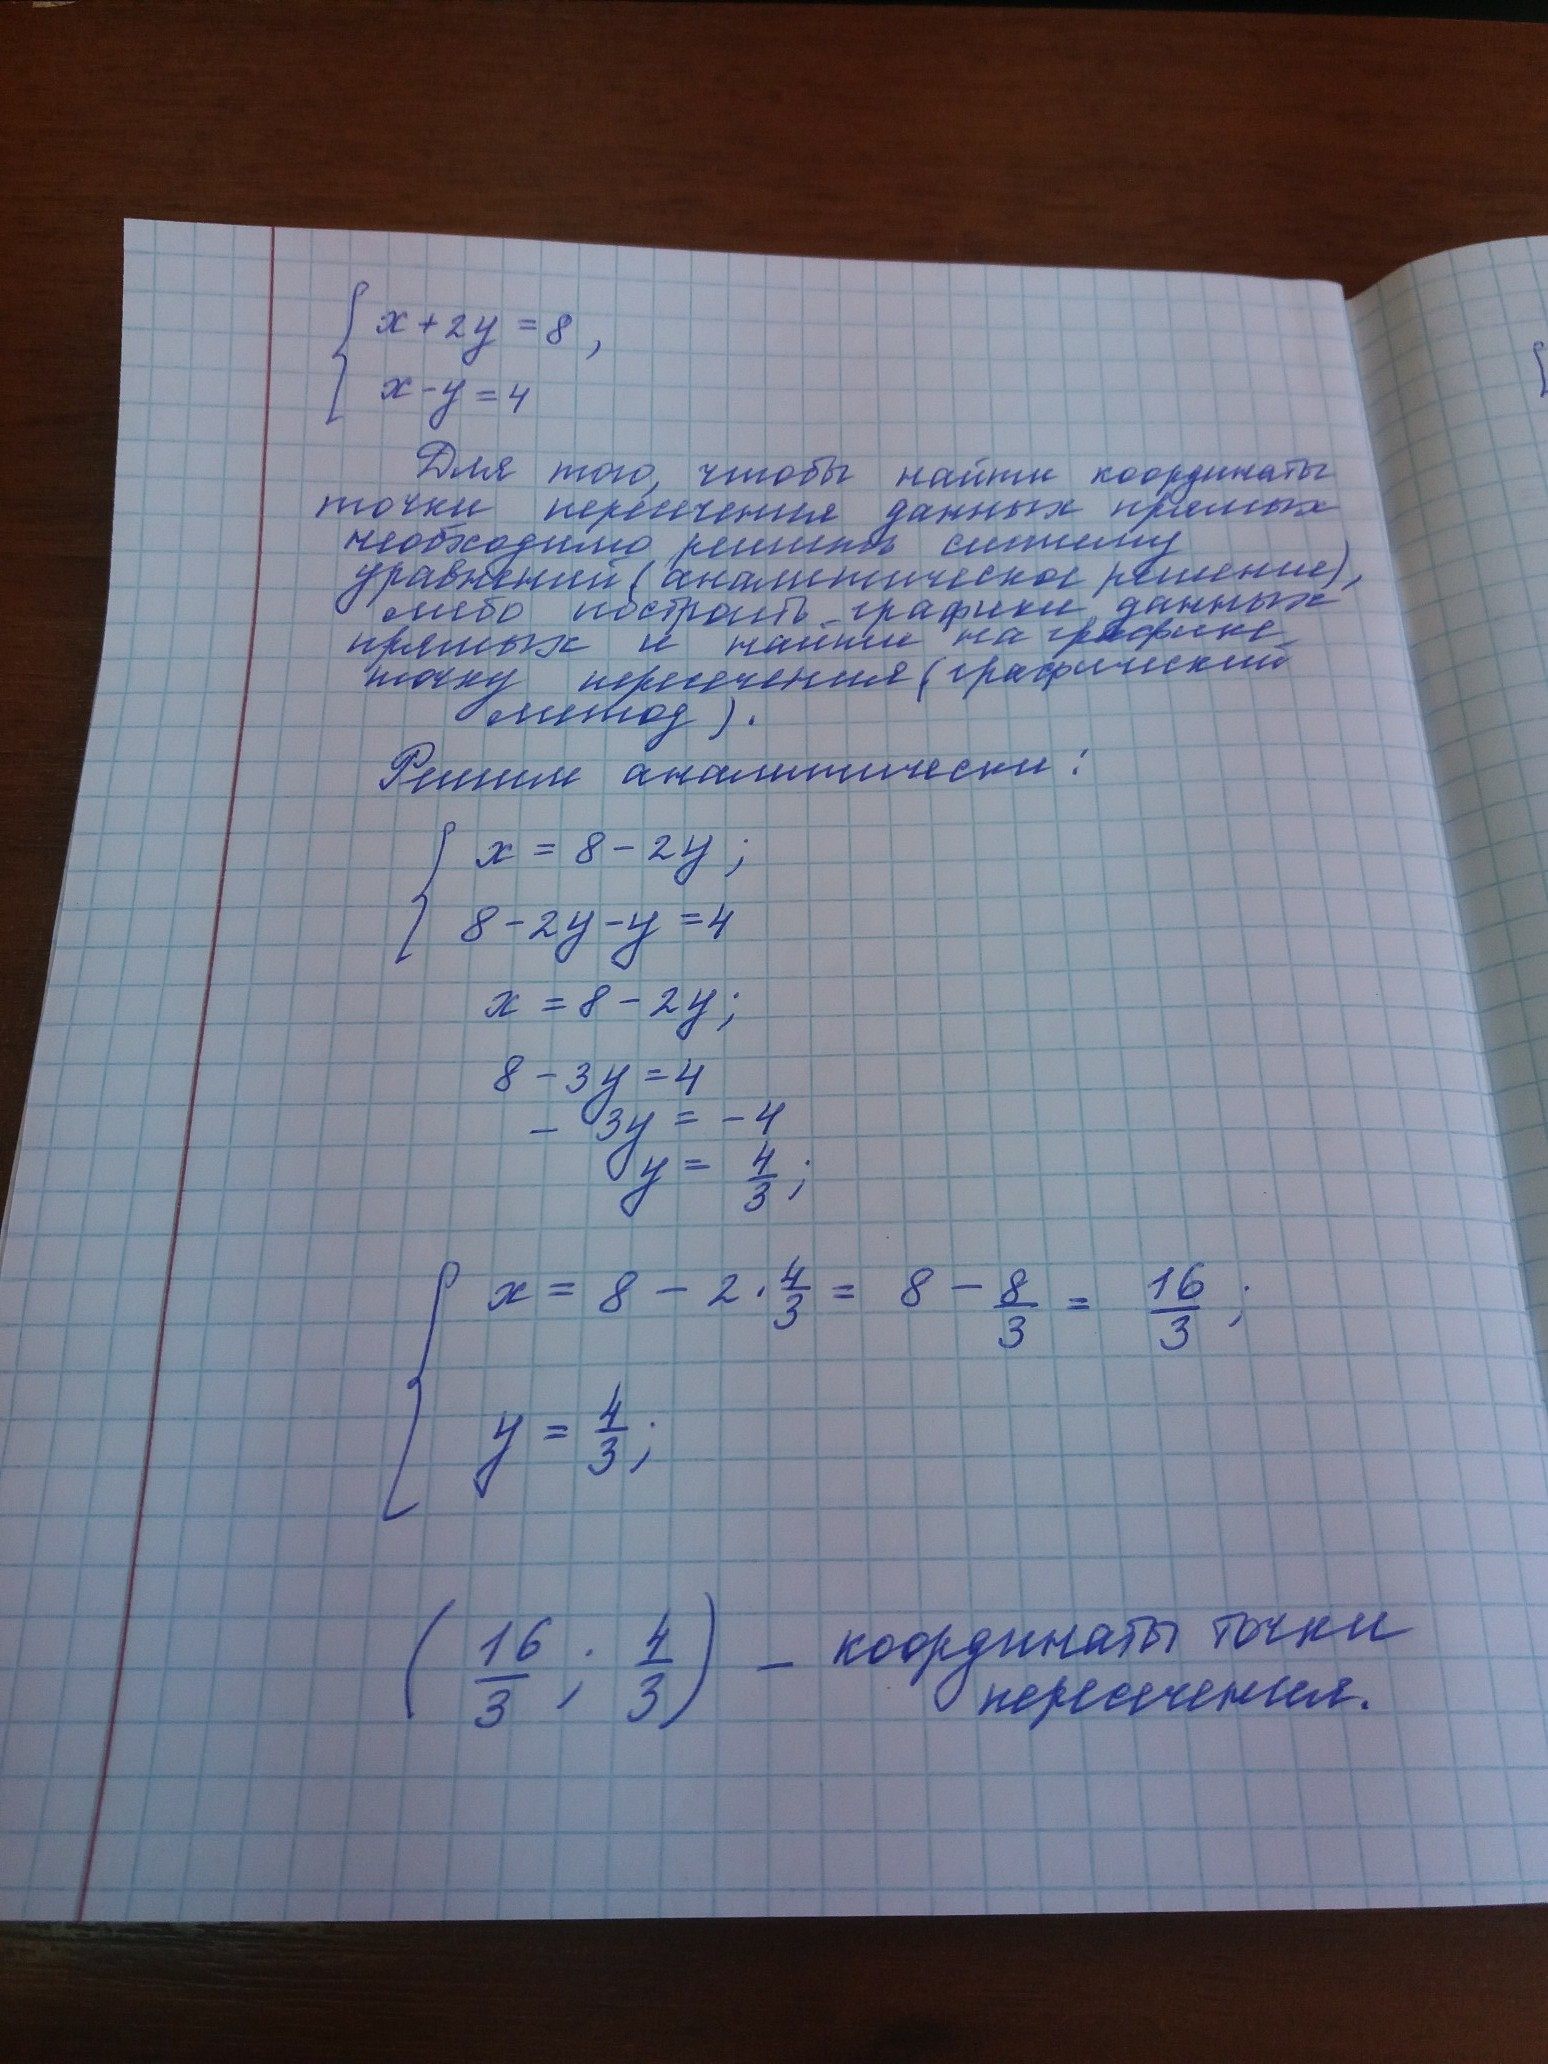 { x + 2y = 8,
x - y = 4
Для того, чтобы найти координаты
точки пересечения данных прямых
необходимо решить систему
уравнений (аналитическое решение),
либо построить графики данных
прямых и найти на графике
точку пересечения (графический
метод).
Решим аналитически:
{ x = 8 - 2y;
8 - 2y - y = 4
x = 8 - 2y;
8 - 3y = 4
- 3y = - 4
y = 4/3;
{ x = 8 - 2 · 4/3 = 8 - 8/3 = 16/3;
y = 4/3;
(16/3; 4/3) - координаты точки
пересечения.